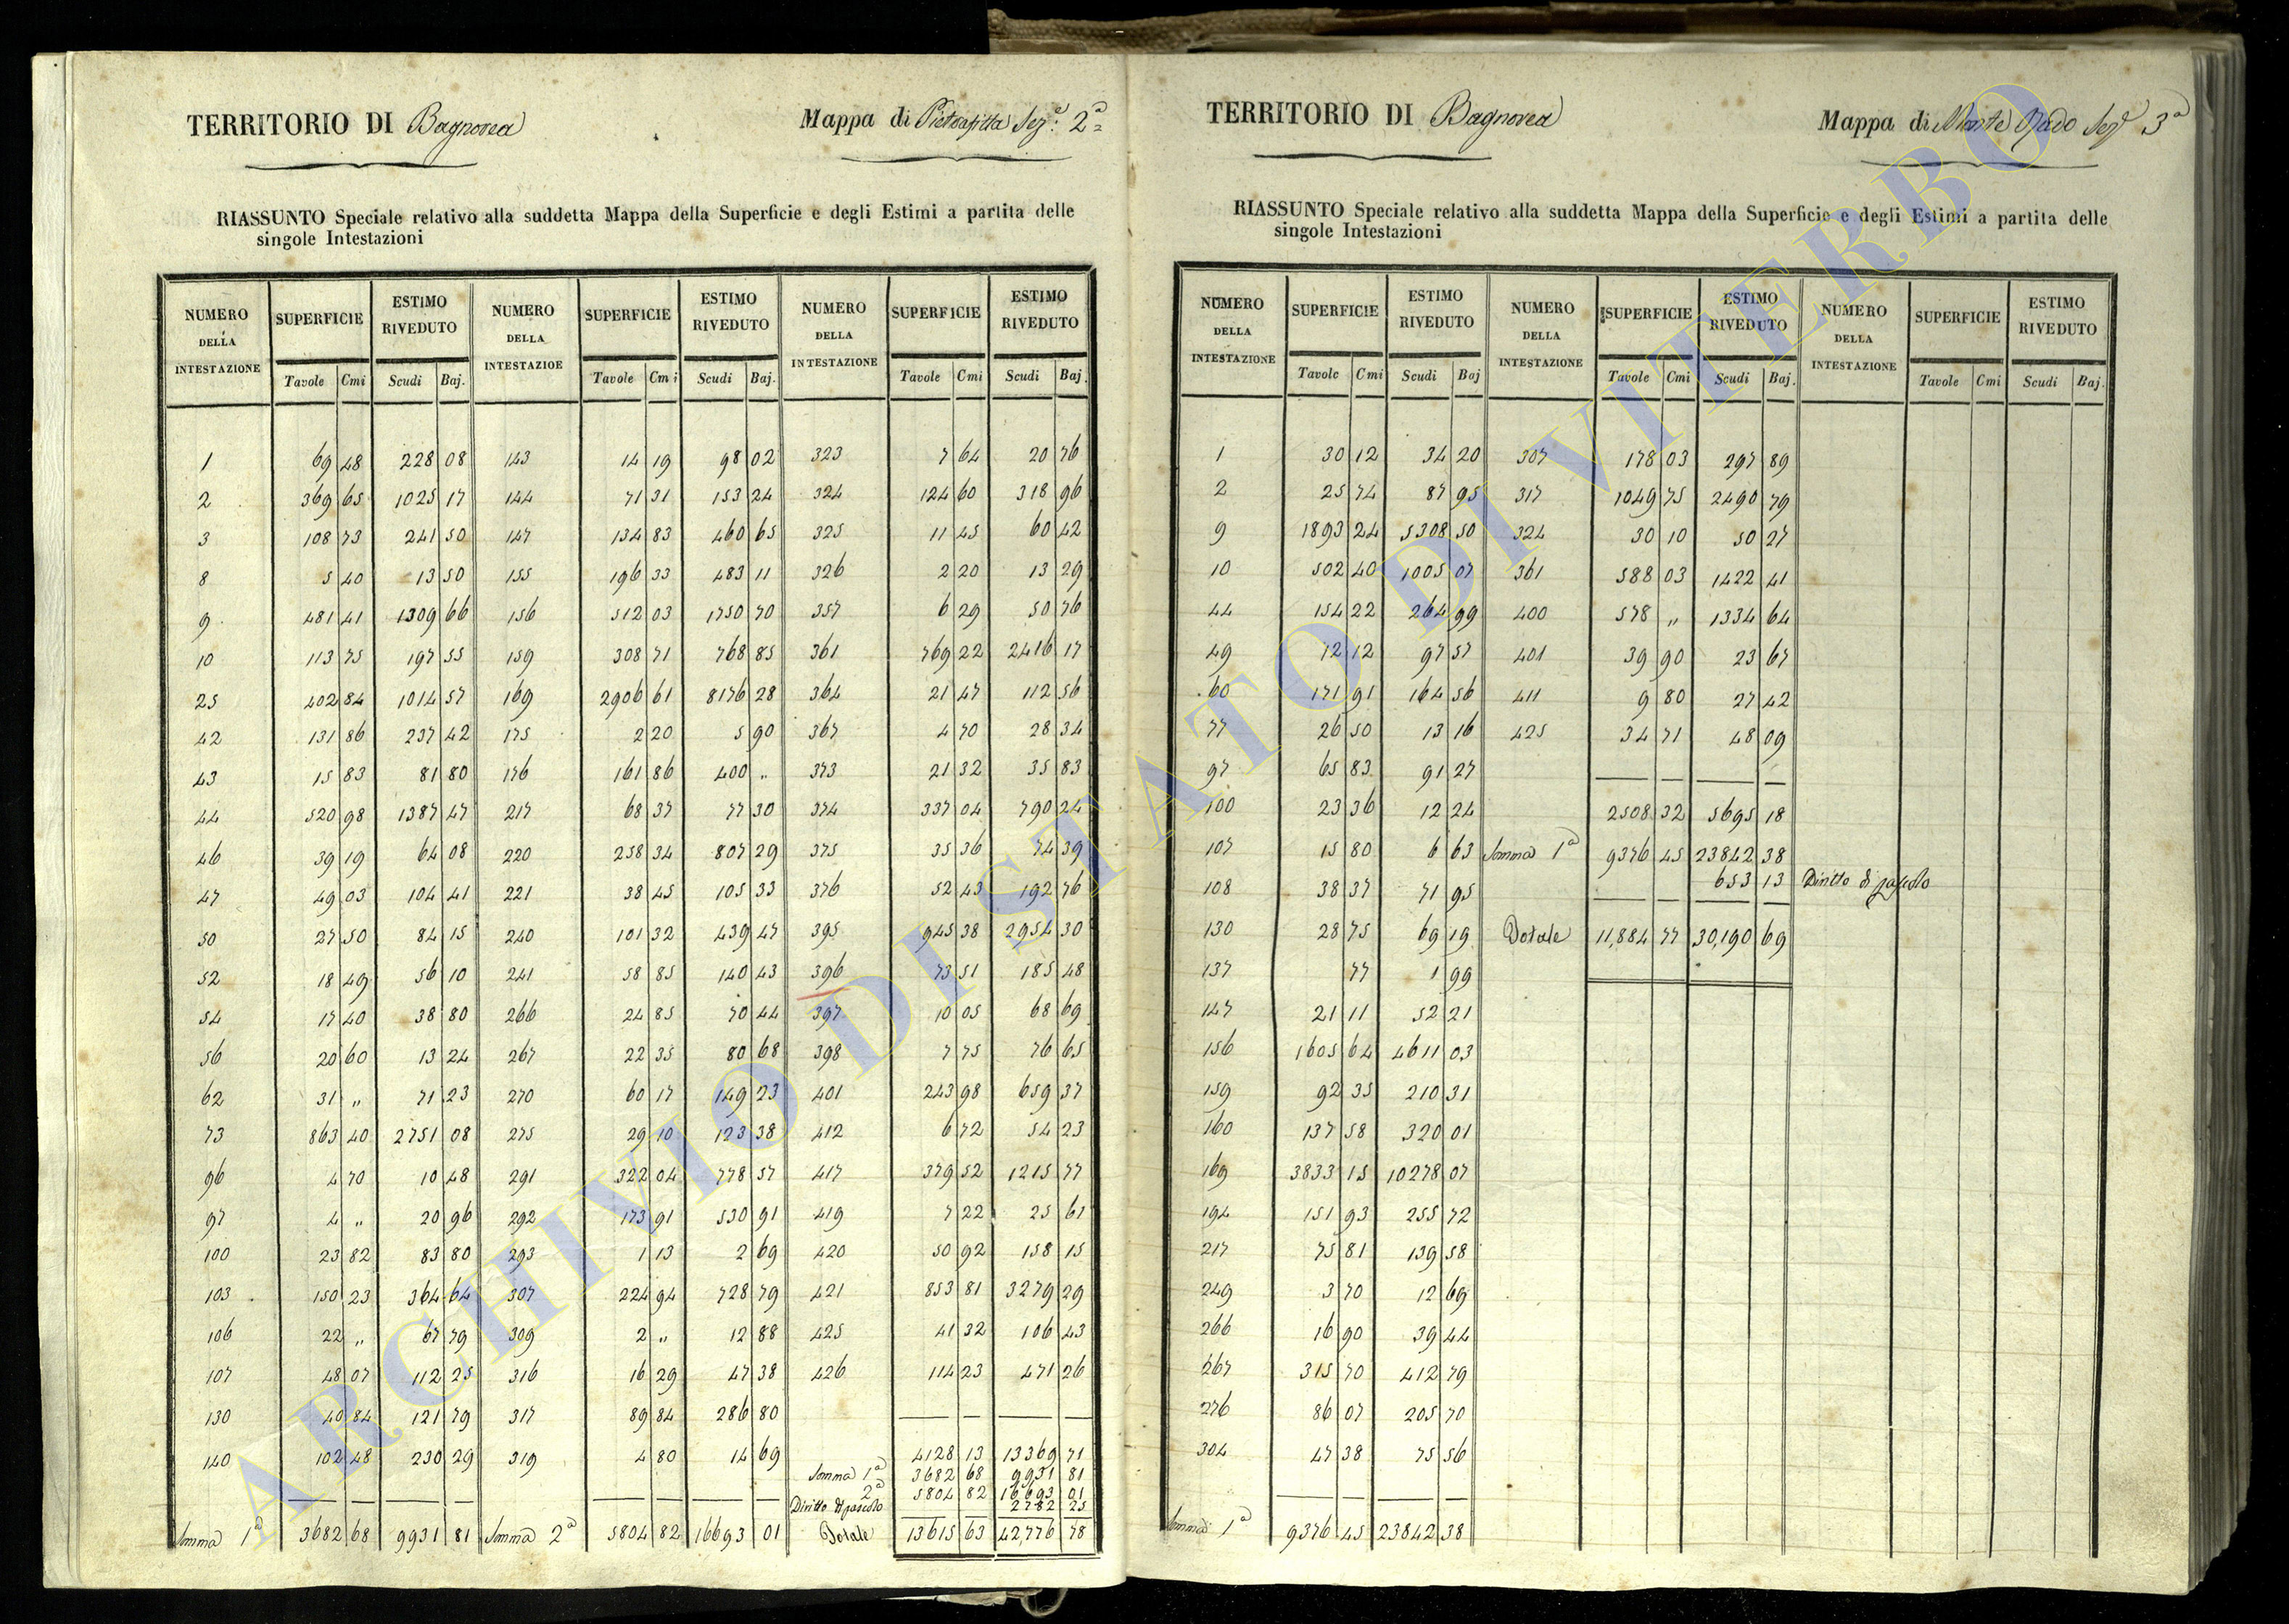 TERRITORIO DI Bagnorea
Mappa di Pietrafitta Sez.e 2a
RIASSUNTO Speciale relativo alla suddetta Mappa della Superficie e degli Estimi a partita delle
singole Intestazioni
NUMERO DELLA INTESTAZIONE SUPERFICIE ESTIMO RIVEDUTO NUMERO DELLA INTESTAZIOE SUPERFICIE ESTIMO RIVEDUTO NUMERO DELLA INTESTAZIONE SUPERFICIE ESTIMO RIVEDUTO
Tavole Cmi Scudi Baj. Tavole Cmi Scudi Baj. Tavole Cmi Scudi Baj.
1 69 48 228 08 143 14 19 98 02 323 7 64 20 76
2 369 65 1025 17 144 71 31 153 24 324 124 60 318 96
3 108 73 241 50 147 134 83 460 65 325 11 45 60 42
8 5 40 13 50 155 196 33 483 11 326 2 20 13 29
9 481 41 1309 66 156 512 03 1750 70 357 6 29 50 76
10 113 75 197 55 159 308 71 768 85 361 769 22 2416 17
25 402 84 1014 57 169 2906 61 8176 28 364 21 47 112 56
42 131 86 237 42 175 2 20 5 90 367 4 70 28 34
43 15 83 81 80 176 161 86 400 „ 373 21 32 35 83
44 520 98 1387 47 217 68 37 77 30 374 337 04 790 24
46 39 19 64 08 220 258 34 807 29 375 35 36 74 39
47 49 03 104 41 221 38 45 105 33 376 52 43 192 76
50 27 50 84 15 240 101 32 439 47 395 945 38 2954 30
52 18 49 56 10 241 58 85 140 43 396 73 51 185 48
54 17 40 38 80 266 24 85 70 44 397 10 05 68 69
56 20 60 13 24 267 22 35 80 68 398 7 75 76 65
62 31 „ 71 23 270 60 17 149 23 401 243 98 659 37
73 863 40 2751 08 275 29 10 123 38 412 6 72 54 23
96 4 70 10 48 291 322 04 778 57 417 379 52 1215 77
97 4 „ 20 96 292 173 91 530 91 419 7 22 25 61
100 23 82 83 80 293 1 13 2 69 420 50 92 158 15
103 150 23 364 64 307 224 94 728 79 421 853 81 3279 29
106 22 „ 67 79 309 2 „ 12 88 425 41 32 106 43
107 48 07 112 25 316 16 29 47 38 426 114 23 471 26
130 40 84 121 79 317 89 84 286 80
140 102 48 230 29 319 4 80 14 69 4128 13 13369 71
Somma 1a 3682 68 9931 81
2a 5804 82 16693 01
Diritto di pascolo 2782 25
Somma 1a 3682 68 9931 81 Somma 2a 5804 82 16693 01 Totale 13615 63 42,776 78
TERRITORIO DI Bagnorea
Mappa di Monte Rado Sez.e 3a
RIASSUNTO Speciale relativo alla suddetta Mappa della Superficie e degli Estimi a partita delle
singole Intestazioni
NUMERO DELLA INTESTAZIONE SUPERFICIE ESTIMO RIVEDUTO NUMERO DELLA INTESTAZIONE SUPERFICIE ESTIMO RIVEDUTO NUMERO DELLA INTESTAZIONE SUPERFICIE ESTIMO RIVEDUTO
Tavole Cmi Scudi Baj Tavole Cmi Scudi Baj. Tavole Cmi Scudi Baj.
1 30 12 34 20 307 178 03 297 89
2 25 74 87 95 317 1049 75 2490 79
9 1893 24 5308 50 324 30 10 50 27
10 502 40 1005 07 361 588 03 1422 41
44 154 22 264 99 400 578 „ 1334 64
49 12 12 97 57 401 39 90 23 67
60 171 91 164 56 411 9 80 27 42
77 26 50 13 16 425 34 71 48 09
97 65 83 91 27
100 23 36 12 24 2508 32 5695 18
107 15 80 6 63 Somma 1a 9376 45 23842 38
108 38 37 71 95 653 13 Diritto di pascolo
130 28 75 69 19 Totale 11,884 77 30,190 69
137 77 1 99
147 21 11 52 21
156 1605 64 4611 03
159 92 35 210 31
160 137 58 320 01
169 3833 15 10278 07
194 151 93 255 72
217 75 81 139 58
249 3 70 12 69
266 16 90 39 44
267 315 70 412 79
276 86 07 205 70
304 47 38 75 56
Somma 1a 9376 45 23842 38
ARCHIVIO DI STATO DI VITERBO